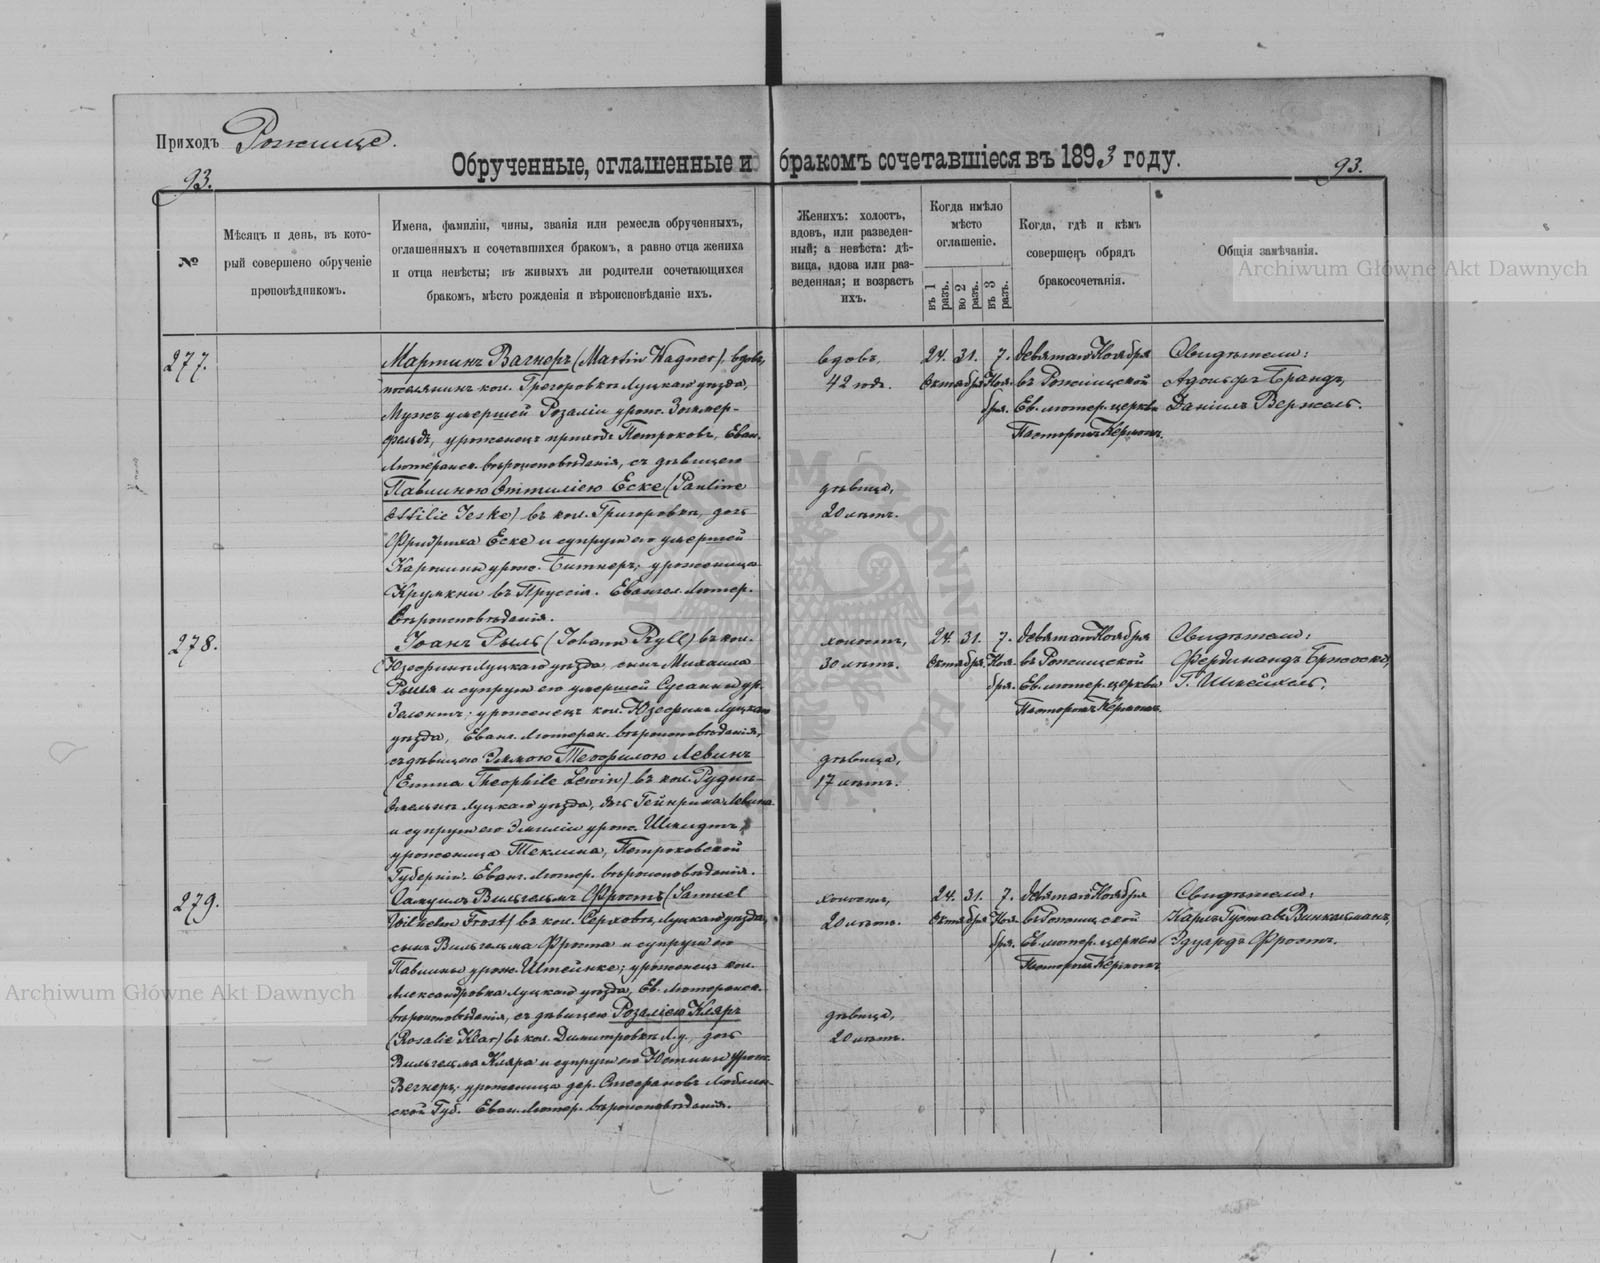 Приходъ Рожище.
Обрученные, оглашенные и бракомъ сочетавшіеся въ 1893 году.
93.
93.
№
Мѣсяцъ и день, въ кото-
рый совершено обрученіе
проповѣдникомъ.
Имена, фамиліи, чины, званія или ремесла обрученныхъ,
оглашенныхъ и сочетавшихся бракомъ, а равно отца жениха
и отца невѣсты; въ живыхъ ли родители сочетающихся
бракомъ, мѣсто рожденія и вѣроисповѣданіе ихъ.
Женихъ: холостъ,
вдовъ, или разведен-
ный; а невѣста: дѣ-
вица, вдова или раз-
веденная; и возрастъ
ихъ.
Когда имѣло
мѣсто
оглашеніе.
въ 1 разъ.
во 2 разъ.
въ 3 разъ.
Когда, гдѣ и кѣмъ
совершенъ обрядъ
бракосочетанія.
Общія замѣчанія.
Archiwum Główne Akt Dawnych
277.
Мартинъ Вагнеръ (Martin Wagner), вдовъ,
поселянинъ кол. Грегоровка Луцкаго уѣзда,
Мужъ умершей Розаліи урож. Зоммер-
фельдъ, уроженецъ прихода Петроковъ, Еван.
Лютеранск. вѣроисповѣданія, съ дѣвицею
Павлиною Оттиліею Еске (Pauline
Ottilie Jeske) въ кол. Григоровка, дочь
Фридриха Еске и супруги его умершей
Каролины урож. Битнеръ; уроженица
въ Пруссіи. Евангел. Лютер.
Вѣроисповѣданія.
вдовъ,
42 годъ.
дѣвица,
20 лѣтъ.
24. 31. 7.
Октября Ноя-
бря.
девятаго Ноября
въ Рожищской
Ев. лютер. церкви
Пасторомъ Кермомъ.
Свидѣтели:
Адольфъ Брандъ,
Даніилъ Вержель.
278.
Іоанъ Рыль (Johann Ryll) въ кол.
Юзефинъ Луцкаго уѣзда, сынъ Михаила
Рыля и супруги его умершей Сусанны ур.
Зелентъ; уроженецъ кол. Юзефинъ Луцкаго
уѣзда, Еванг. Лютеран. вѣроисповѣданія,
съ дѣвицею Эммою Теофилою Левинъ
(Emma Theophile Lewin) въ кол.
Луцкаго уѣзда, дочь Гейнриха Левина
и супруги его Эмиліи урож. Шмидтъ,
уроженица Теклина, Петроковской
Губерніи. Еванг. Лютер. вѣроисповѣданія.
холостъ,
30 лѣтъ.
дѣвица,
17 лѣтъ.
24. 31. 7.
Октября. Ноя-
бря.
девятаго Ноября
въ Рожищской
Ев. лютер. церкви
Пасторомъ Кермомъ.
Свидѣтели:
Фердинандъ
Г. Шмейхель.
279.
Самуилъ Вильгельмъ Фростъ (Samuel
Wilhelm Frost) въ кол. Серховъ, Луцкаго уѣзда,
сынъ Вильгельма Фроста и супруги его
Павлины урож. Штейнке; уроженецъ кол.
Александровка Луцкаго уѣзда, Ев. Лютеранск.
вѣроисповѣданія, съ дѣвицею Розаліею Кляръ
(Rosalie Klar) въ кол. Димитровка Л. у., дочь
Вильгельма Кляра и супруги его Юстины урож.
Вегнеръ; уроженица дер. Стефановъ Люблин-
ской Губ. Еван. Лютер. вѣроисповѣданія.
холостъ,
20 лѣтъ.
дѣвица,
20 лѣтъ.
24. 31. 7.
Октября Ноя-
бря.
девятаго Ноября
въ Рожищской
Ев. лютер. церкви
Пасторомъ Кермомъ
Свидѣтели:
Карлъ Густавъ Винкельманъ,
Эдуардъ Фростъ.
Archiwum Główne Akt Dawnych